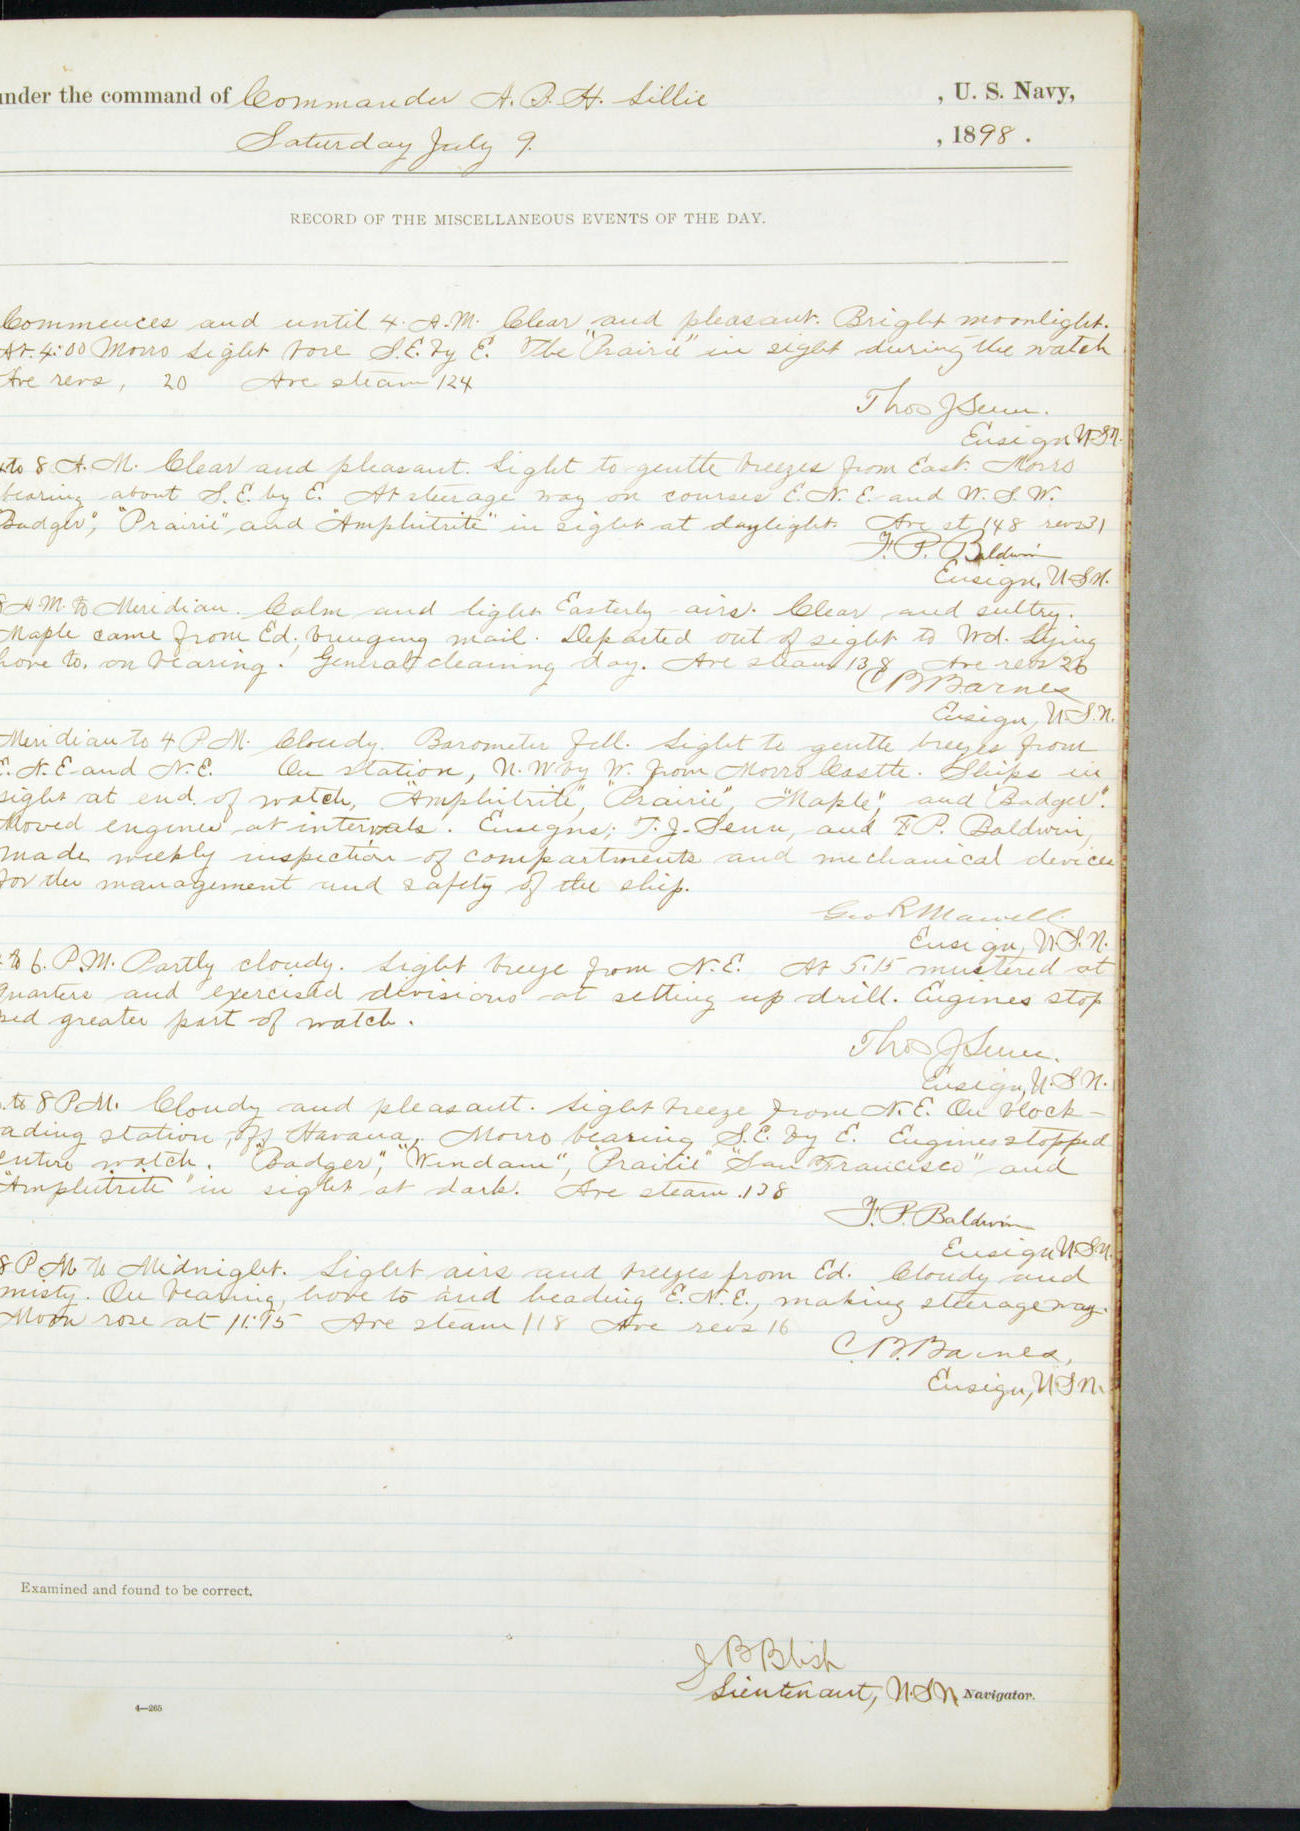 under the command of Commander A. B. H. Lillie , U. S. Navy,
Saturday July 9. , 1898 .
RECORD OF THE MISCELLANEOUS EVENTS OF THE DAY.
Commences and until 4. A.M. Clear and pleasant. Bright moonlight.
At. 4:00 Morro Light bore S.E. by E. The "Prairie" in sight during the watch
Ave revs, 20 Ave steam 124
Thos J Senn.
Ensign U.S.N.
to 8 A. M. Clear and pleasant. Light to gentle breezes from East. Morro
bearing about S.E. by E. At steerage way on courses E. N. E. and W. S. W.
"Badger", "Prairie" and "Amphitrite" in sight at daylight. Ave st. 148 revs 31
F. P. Baldwin
Ensign, U.S.N.
8 A.M. to Meridian. Calm and light Easterly airs. Clear and sultry.
Maple came from Ed, bringing mail. Departed out of sight to Wd. Lying
hove to, on bearing. General cleaning day. Ave steam 138 Ave revs 26
C B Barnes
Ensign, U.S.N.
Meridian to 4 P.M. Cloudy. Barometer fell. Light to gentle breezes from
E. N. E and N. E. On station, N. W by W. from Morro Castle. Ships in
sight at end of watch, "Amphitrite", "Prairie", "Maple", and "Badger".
Moved engines at intervals. Ensigns; T. J. Senn, and F. P. Baldwin,
made weekly inspection of compartments and mechanical devices
for the management and safety of the ship.
Geo R Marvell
Ensign, U.S.N.
to 6. P.M. Partly cloudy. Light breeze from N. E. At 5:15 mustered at
quarters and exercised divisions at setting up drill. Engines stop
ped greater part of watch.
Thos J Senn.
Ensign, U.S.N.
to 8 P.M. Cloudy and pleasant. Light breeze from N. E. On block-
ading station off Havana, Morro bearing S. E. by E. Engines stopped
entire watch. "Badger", "Windam", "Prairie" "San Francisco" and
"Amphitrite" in sight at dark. Ave steam 138
F. P. Baldwin
Ensign U.S.N.
8 P.M to Midnight. Light airs and breezes from Ed. Cloudy and
misty. On bearing, hove to and heading E. N. E., making steerage way.
Moon rose at 11:15 Ave steam 118 Ave revs 16
C. B. Barnes,
Ensign, U.S.N.
Examined and found to be correct.
J B Blish
Lieutenant, U.S.N. Navigator.
4—265